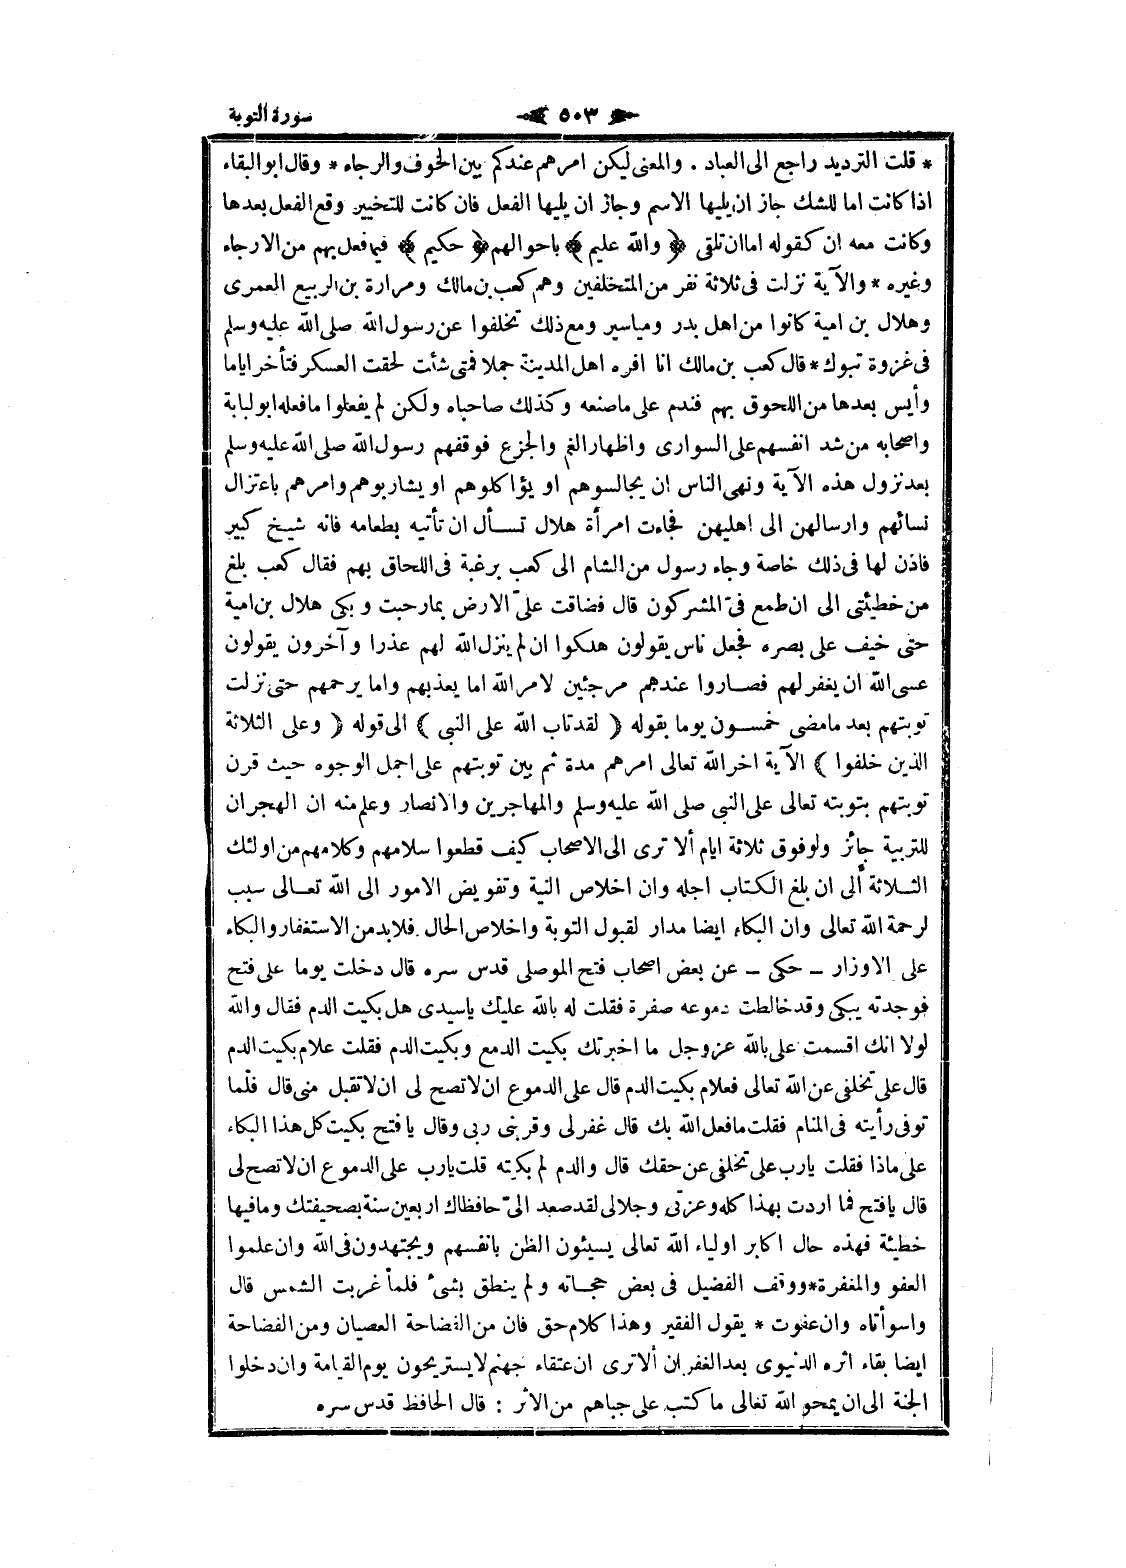 سورة التوبة
٥٠٣
* قلت الترديد راجع الى العباد . والمعنى ليكن امرهم عندكم بين الخوف والرجاء * وقال ابو البقاء
اذا كانت اما للشك جاز ان يليها الاسم وجاز ان يليها الفعل فان كانت للتخيير وقع الفعل بعدها
وكانت معه ان كقوله اما ان تلقى ﴿ والله عليم ﴾ باحوالهم ﴿ حكيم ﴾ فيما فعل بهم من الارجاء
وغيره * والآية نزلت فى ثلاثة نفر من المتخلفين وهم كعب بن مالك ومرارة بن الربيع العمرى
وهلال بن امية كانوا من اهل بدر ومياسير ومع ذلك تخلفوا عن رسول الله صلى الله عليه وسلم
فى غزوة تبوك * قال كعب بن مالك انا افره اهل المدينة جملا فمتى شأت لحقت العسكر فتأخر اياما
وأيس بعدها من اللحوق بهم فندم على ما صنعه وكذلك صاحباه ولكن لم يفعلوا ما فعله ابو لبابة
واصحابه من شد انفسهم على السوارى واظهار الغم والجزع فوقفهم رسول الله صلى الله عليه وسلم
بعد نزول هذه الآية ونهى الناس ان يجالسوهم او يؤاكلوهم او يشاربوهم وامرهم باعتزال
نسائهم وارسالهن الى اهليهن فجاءت امرأة هلال تسأل ان تأتيه بطعامه فانه شيخ كبير
فاذن لها فى ذلك خاصة وجاء رسول من الشام الى كعب برغبة فى اللحاق بهم فقال كعب بلغ
من خطيئتى الى ان طمع فىّ المشركون قال فضاقت علىّ الارض بما رحبت وبكى هلال بن امية
حتى خيف على بصره فجعل ناس يقولون هلكوا ان لم ينزل الله لهم عذرا وآخرون يقولون
عسى الله ان يغفر لهم فصاروا عندهم مرجئين لامر الله اما يعذبهم واما يرحمهم حتى نزلت
توبتهم بعد ما مضى خمسون يوما بقوله ﴿ لقد تاب الله على النبى ﴾ الى قوله ﴿ وعلى الثلاثة
الذين خلفوا ﴾ الآية اخر الله تعالى امرهم مدة ثم بين توبتهم على اجمل الوجوه حيث قرن
توبتهم بتوبته تعالى على النبى صلى الله عليه وسلم والمهاجرين والانصار وعلم منه ان الهجران
للتربية جائز ولو فوق ثلاثة ايام ألا ترى الى الاصحاب كيف قطعوا سلامهم وكلامهم من اولئك
الثلاثة ألى ان بلغ الكتاب اجله وان اخلاص النية وتفويض الامور الى الله تعالى سبب
لرحمة الله تعالى وان البكاء ايضا مدار لقبول التوبة واخلاص الحال فلابد من الاستغفار والبكاء
على الاوزار ـ حكى ـ عن بعض اصحاب فتح الموصلى قدس سره قال دخلت يوما على فتح
فوجدته يبكى وقد خالطت دموعه صفرة فقلت له بالله عليك ياسيدى هل بكيت الدم فقال والله
لولا انك اقسمت على بالله عز وجل ما اخبرتك بكيت الدمع وبكيت الدم فقلت علام بكيت الدم
قال على تخلفى عن الله تعالى فعلام بكيت الدم قال على الدموع ان لا تصح لى ان لا تقبل منى قال فلما
توفى رأيته فى المنام فقلت ما فعل الله بك قال غفر لى وقربنى ربى وقال يا فتح بكيت كل هذا البكاء
على ماذا فقلت يارب على تخلفى عن حقك قال والدم لم بكيته قلت يارب على الدموع ان لا تصح لى
قال يا فتح فما اردت بهذا كله وعزتى وجلالى لقد صعد الىّ حافظاك اربعين سنة بصحيفتك وما فيها
خطيئة فهذه حال اكابر اولياء الله تعالى يسيئون الظن بانفسهم ويجتهدون فى الله وان علموا
العفو والمغفرة * ووقف الفضيل فى بعض حجاته ولم ينطق بشئ فلما غربت الشمس قال
واسوأتاه وان عفوت * يقول الفقير وهذا كلام حق فان من الفضاحة العصيان ومن الفضاحة
ايضا بقاء اثره الدنيوى بعد الغفران ألا ترى ان عتقاء جهنم لا يستريحون يوم القيامة وان دخلوا
الجنة الى ان يمحو الله تعالى ما كتب على جباهم من الاثر : قال الحافظ قدس سره